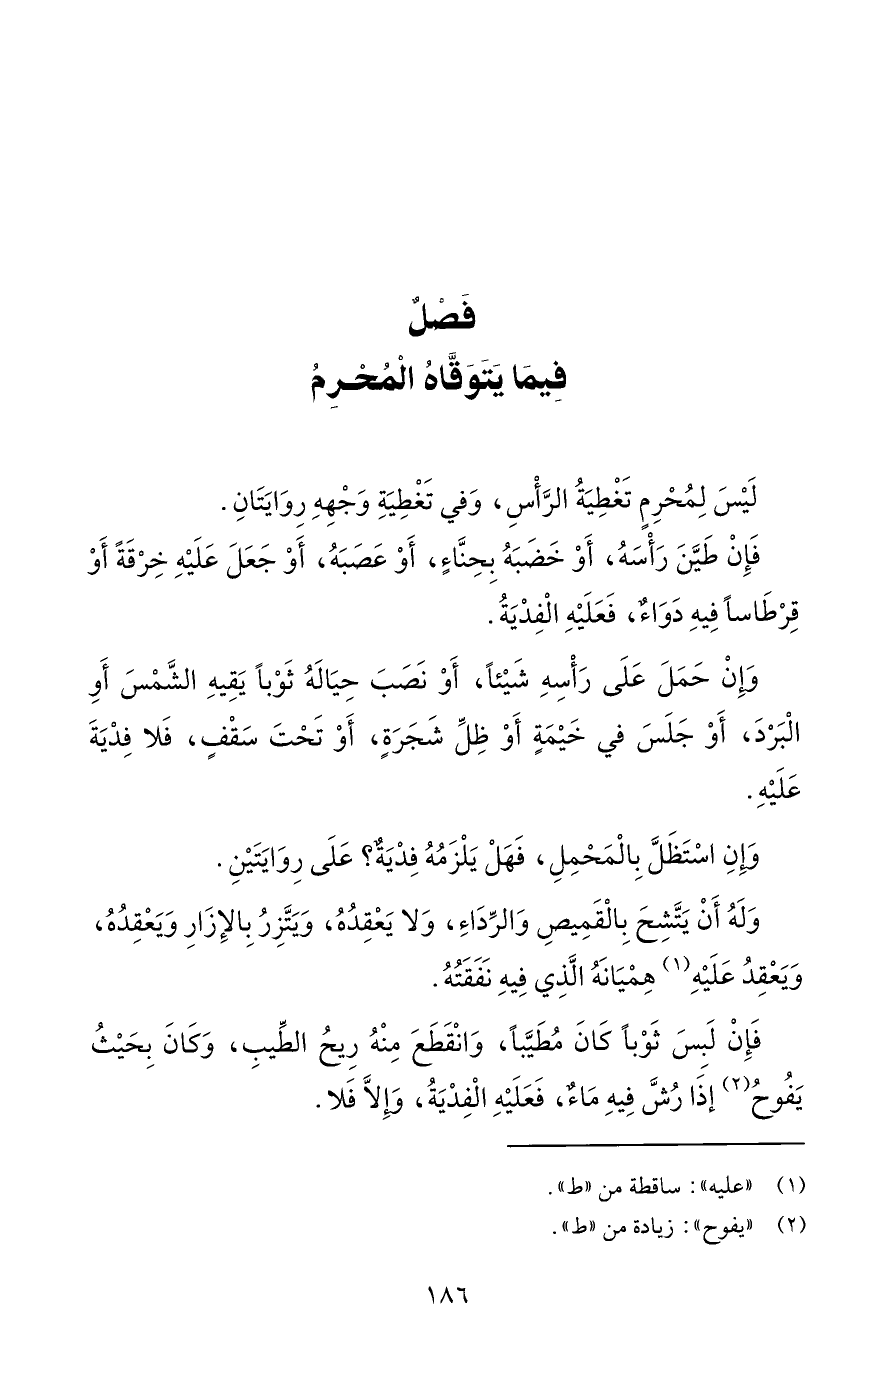 فَصْلٌ
فِيمَا يَتَوَقَّاهُ الْمُحْرِمُ
لَيْسَ لِمُحْرِمٍ تَغْطِيَةُ الرَّأْسِ، وَفي تَغْطِيَةِ وَجْهِهِ رِوَايَتَانِ.
فَإِنْ طَيَّنَ رَأْسَهُ، أَوْ خَضَبَهُ بِحِنَّاءٍ، أَوْ عَصَبَهُ، أَوْ جَعَلَ عَلَيْهِ خِرْقَةً أَوْ
قِرْطَاساً فِيهِ دَوَاءٌ، فَعَلَيْهِ الْفِدْيَةُ.
وَإِنْ حَمَلَ عَلَى رَأْسِهِ شَيْئاً، أَوْ نَصَبَ حِيَالَهُ ثَوْباً يَقِيهِ الشَّمْسَ أَوِ
الْبَرْدَ، أَوْ جَلَسَ في خَيْمَةٍ أَوْ ظِلِّ شَجَرَةٍ، أَوْ تَحْتَ سَقْفٍ، فَلا فِدْيَةَ
عَلَيْهِ.
وَإِنِ اسْتَظَلَّ بِالْمَحْمِلِ، فَهَلْ يَلْزَمُهُ فِدْيَةٌ؟ عَلَى رِوَايَتَيْنِ.
وَلَهُ أَنْ يَتَّشِحَ بِالْقَمِيصِ وَالرِّدَاءِ، وَلا يَعْقِدُهُ، وَيَتَّزِرُ بِالإِزَارِ وَيَعْقِدُهُ،
وَيَعْقِدُ عَلَيْهِ(١) هِمْيَانَهُ الَّذِي فِيهِ نَفَقَتُهُ.
فَإِنْ لَبِسَ ثَوْباً كَانَ مُطَيَّباً، وَانْقَطَعَ مِنْهُ رِيحُ الطِّيبِ، وَكَانَ بِحَيْثُ
يَفُوحُ(٢) إِذَا رُشَّ فِيهِ مَاءٌ، فَعَلَيْهِ الْفِدْيَةُ، وَإِلاَّ فَلا.
(١) «عليه»: ساقطة من «ط».
(٢) «يفوح»: زيادة من «ط».
١٨٦